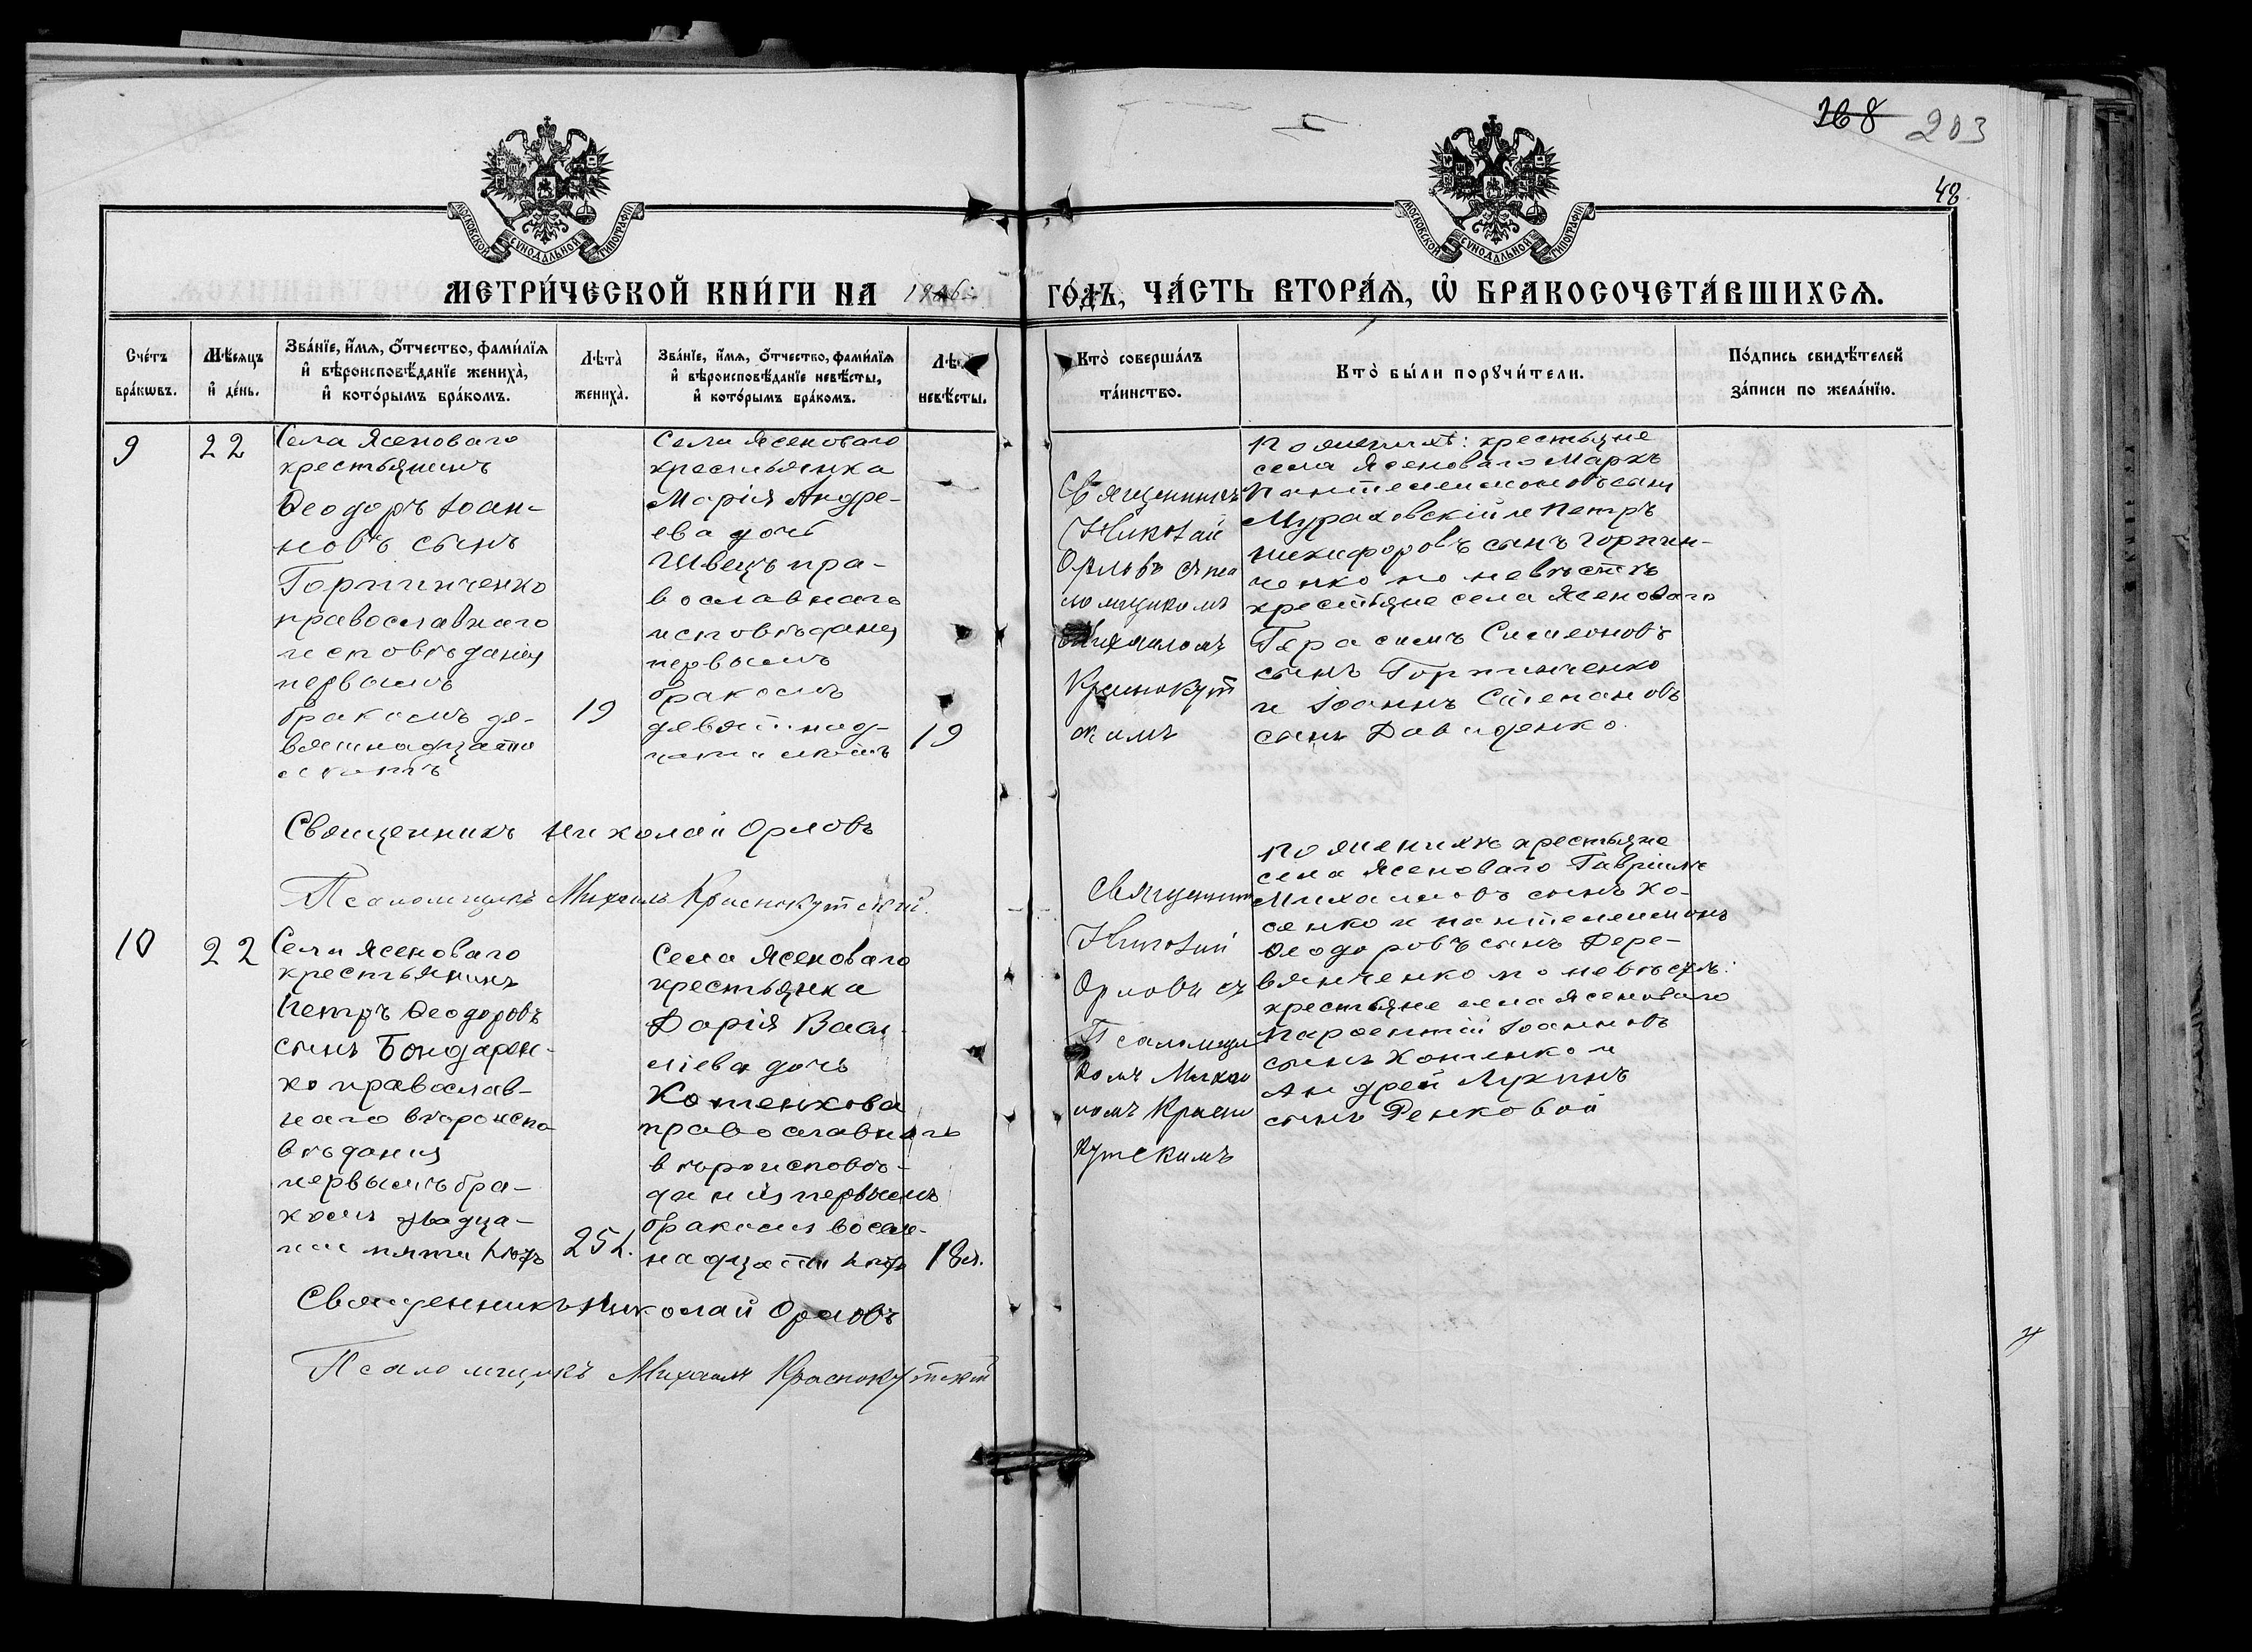 168 203
48
МОСКОВСКОЙ СѴНОДАЛЬНОЙ ТИПОГРАФІИ
МОСКОВСКОЙ СѴНОДАЛЬНОЙ ТИПОГРАФІИ
МЕТРИ́ЧЕСКОЙ КНИ́ГИ НА
ГО́ДЪ, ЧА́СТЬ ВТОРА́Ѧ, Ѡ҆ БРАКОСОЧЕТА́ВШИХСѦ.
Сче́тъ
бра́кѡвъ.
Мѣ́сѧцъ
и҆ де́нь.
Зва́нїе, и҆́мѧ, ѻ҆́тчество, фами́лїѧ
и҆ вѣроисповѣ́данїе жениха̀,
и҆ кото́рымъ бра́комъ.
Лѣта̀
жениха̀.
Зва́нїе, и҆́мѧ, ѻ҆́тчество, фами́лїѧ
и҆ вѣроисповѣ́данїе невѣ́сты,
и҆ кото́рымъ бра́комъ.
Лѣ
невѣ́сты.
Кто̀ соверша́лъ
та́инство.
Кто̀ бы́ли порꙋчи́тели.
По́дпись свидѣ́телей
за́писи по жела́нїю.
9
22
Села Ясеноваго
крестьянинъ
Ѳеодоръ Іоан-
новъ сынъ
Горпинченко
православнаго
исповѣданія
первымъ
бракомъ де-
вятнадцати
лѣтъ
19
Села Ясеноваго
крестьянка
Марія Андре-
ева дочь
Швецъ пра-
вославнаго
исповѣданія
первымъ
бракомъ
девятнад-
цати лѣтъ
19
Священникъ
Николай
Орловъ съ пса
ломщикомъ
Михаиломъ
Краснокут
скимъ
По женихѣ: крестьяне
села Ясеноваго Маркъ
Пантелеимоновъ сынъ
Мураховскій и Петръ
Никифоровъ сынъ Горпин-
ченко по невѣстѣ
крестьяне села Ясеноваго
Герасимъ Симеоновъ
сынъ Горпинченко
и Іоаннъ Стефановъ
сынъ Давиденко.
Священникъ Николай Орловъ
Псаломщикъ Михаилъ Краснокутский.
10
22
Села Ясеноваго
крестьянинъ
Петръ Ѳеодоровъ
сынъ Бондарен-
ко православ-
наго вѣроиспо
вѣданія
первымъ бра-
комъ двадца-
ти пяти лѣтъ
25 л.
Села Ясеноваго
крестьянка
Дарія Васи-
ліева дочь
Котенкова
православнаго
вѣроисповѣ-
данія первымъ
бракомъ восем-
надцати лѣтъ
18 л.
Священникъ
Николай
Орловъ съ
Псаломщи
комъ Михаи
ломъ Красно
кутскимъ
По женихѣ крестьяне
села Ясеноваго Гавріилъ
Михаиловъ сынъ Ко-
сенко и Пантелеимонъ
Ѳеодоровъ сынъ Дере-
вянченко по невѣстѣ:
крестьяне села Ясеноваго
Іоанновъ
сынъ Котенко и
Андрей Лукинъ
сынъ Ренковой
Священникъ Николай Орловъ
Псаломщикъ Михаилъ Краснокутский